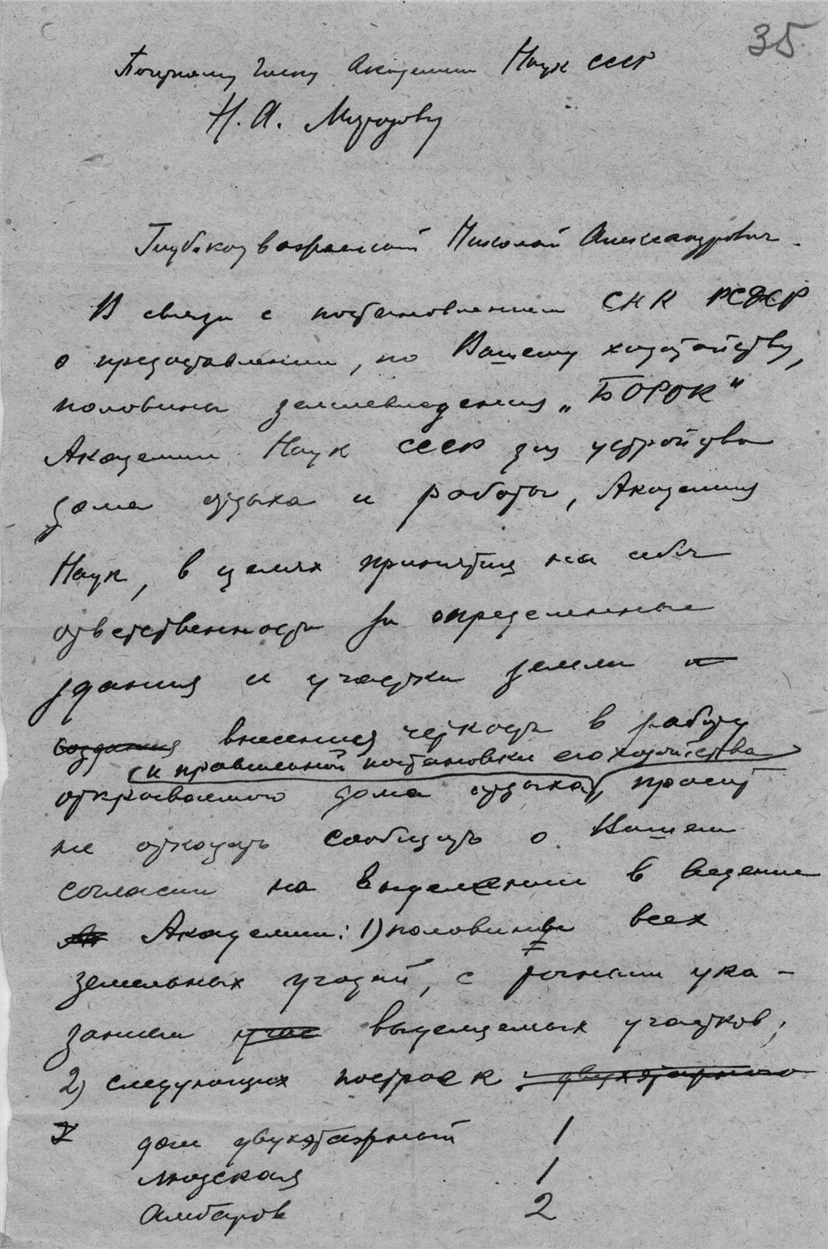 35
Почетному члену Академии Наук СССР
Н. А. Морозову
Глубокоуважаемый Николай Александрович.
В связи с постановлением СНК РСФСР
о предоставлении, по Вашему ходатайству,
половины землевладения „БОРОК"
Академии Наук СССР для устройства
дома отдыха и работы, Академия
Наук, в целях принятия на себя
ответственности за определенные
здания и участки земли и
создания внесения четкости в работу
(и правильной постановки его хозяйства)
открываемого дома отдыха, просит
не отказать сообщить о Вашем
согласии на выделение в ведение
Академии: 1) половины всех
земельных угодий, с точным ука-
занием учас выделяемых участков;
2) следующих построек: двухэтажного
дом двухэтажный 1
людская 1
амбаров 2